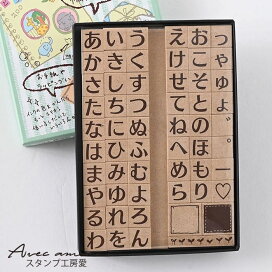 あかさたなはまやるわ
いきしちにひみゆれを
うくすつぬふむよろん
えけせてねへめら
おこそとのほもり
っゃゅょ゛。ー♡
お手紙や
スタンプ工房愛